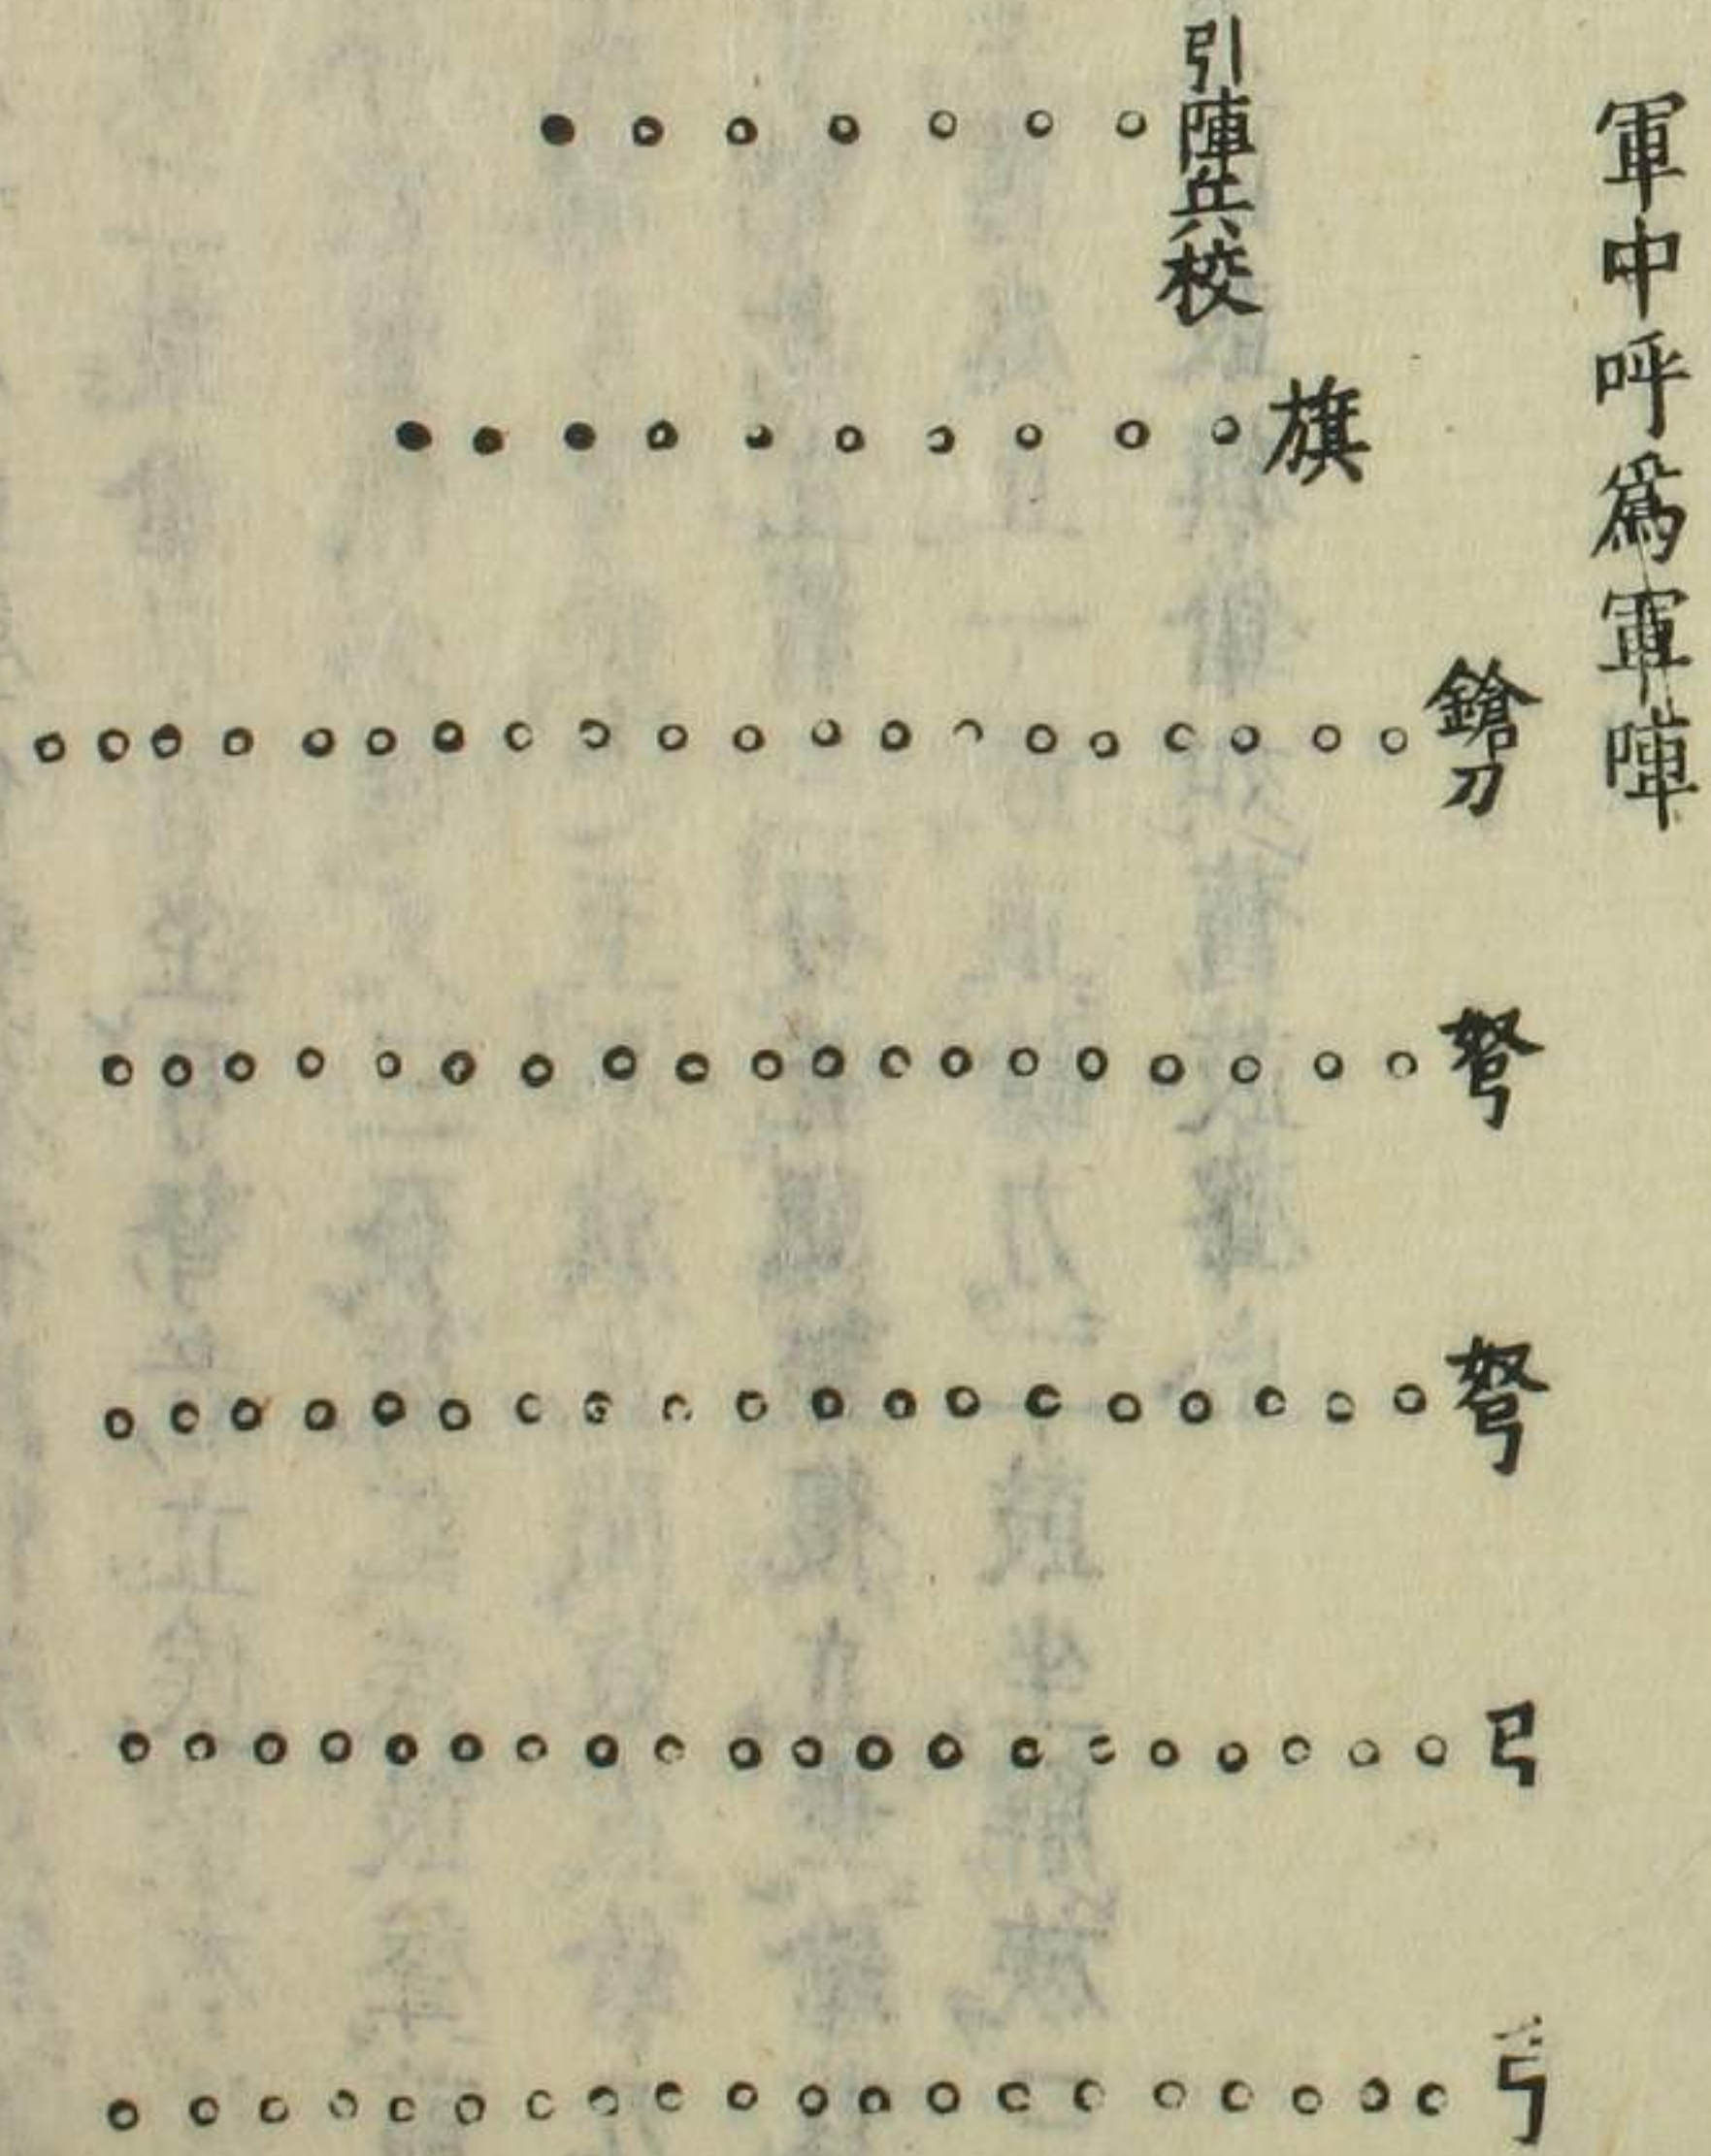 軍中呼爲軍陣
引陣兵校
旗
鎗刀
弩
弩
弓
弓